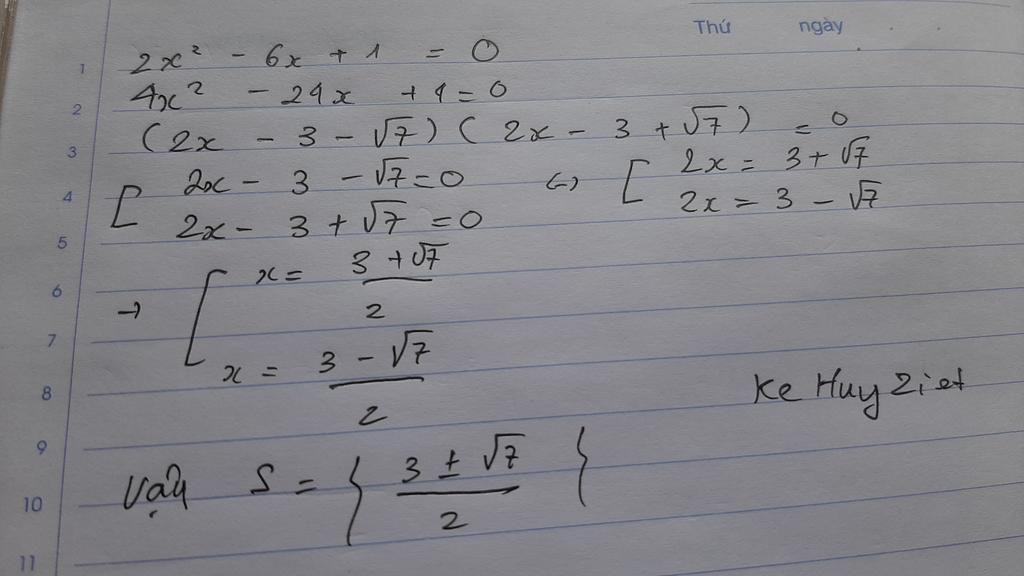 Thứ ngày
1 2x² - 6x + 1 = 0
2 4x² - 24x + 1 = 0
3 (2x - 3 - √7)(2x - 3 + √7) = 0
4 [ 2x - 3 - √7 = 0 (=) [ 2x = 3 + √7
5 2x - 3 + √7 = 0 2x = 3 - √7
6 → [ x = (3 + √7)/2
7
8 x = (3 - √7)/2
Ke Huy Ziet
9
10 Vậy S = { (3 ± √7)/2 }
11